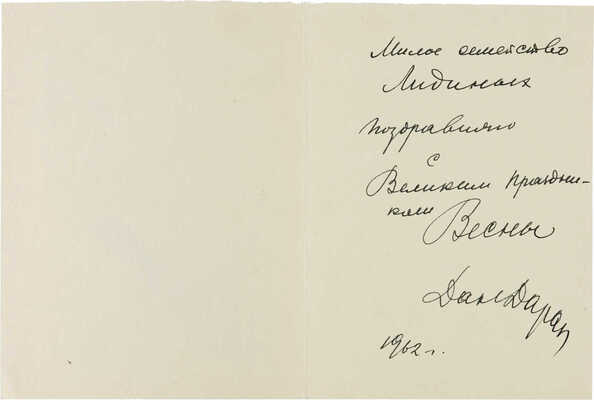 Милое семейство
Лидиных
поздравляю
с
Великим праздни-
ком Весны
Дан Даран
1962 г.